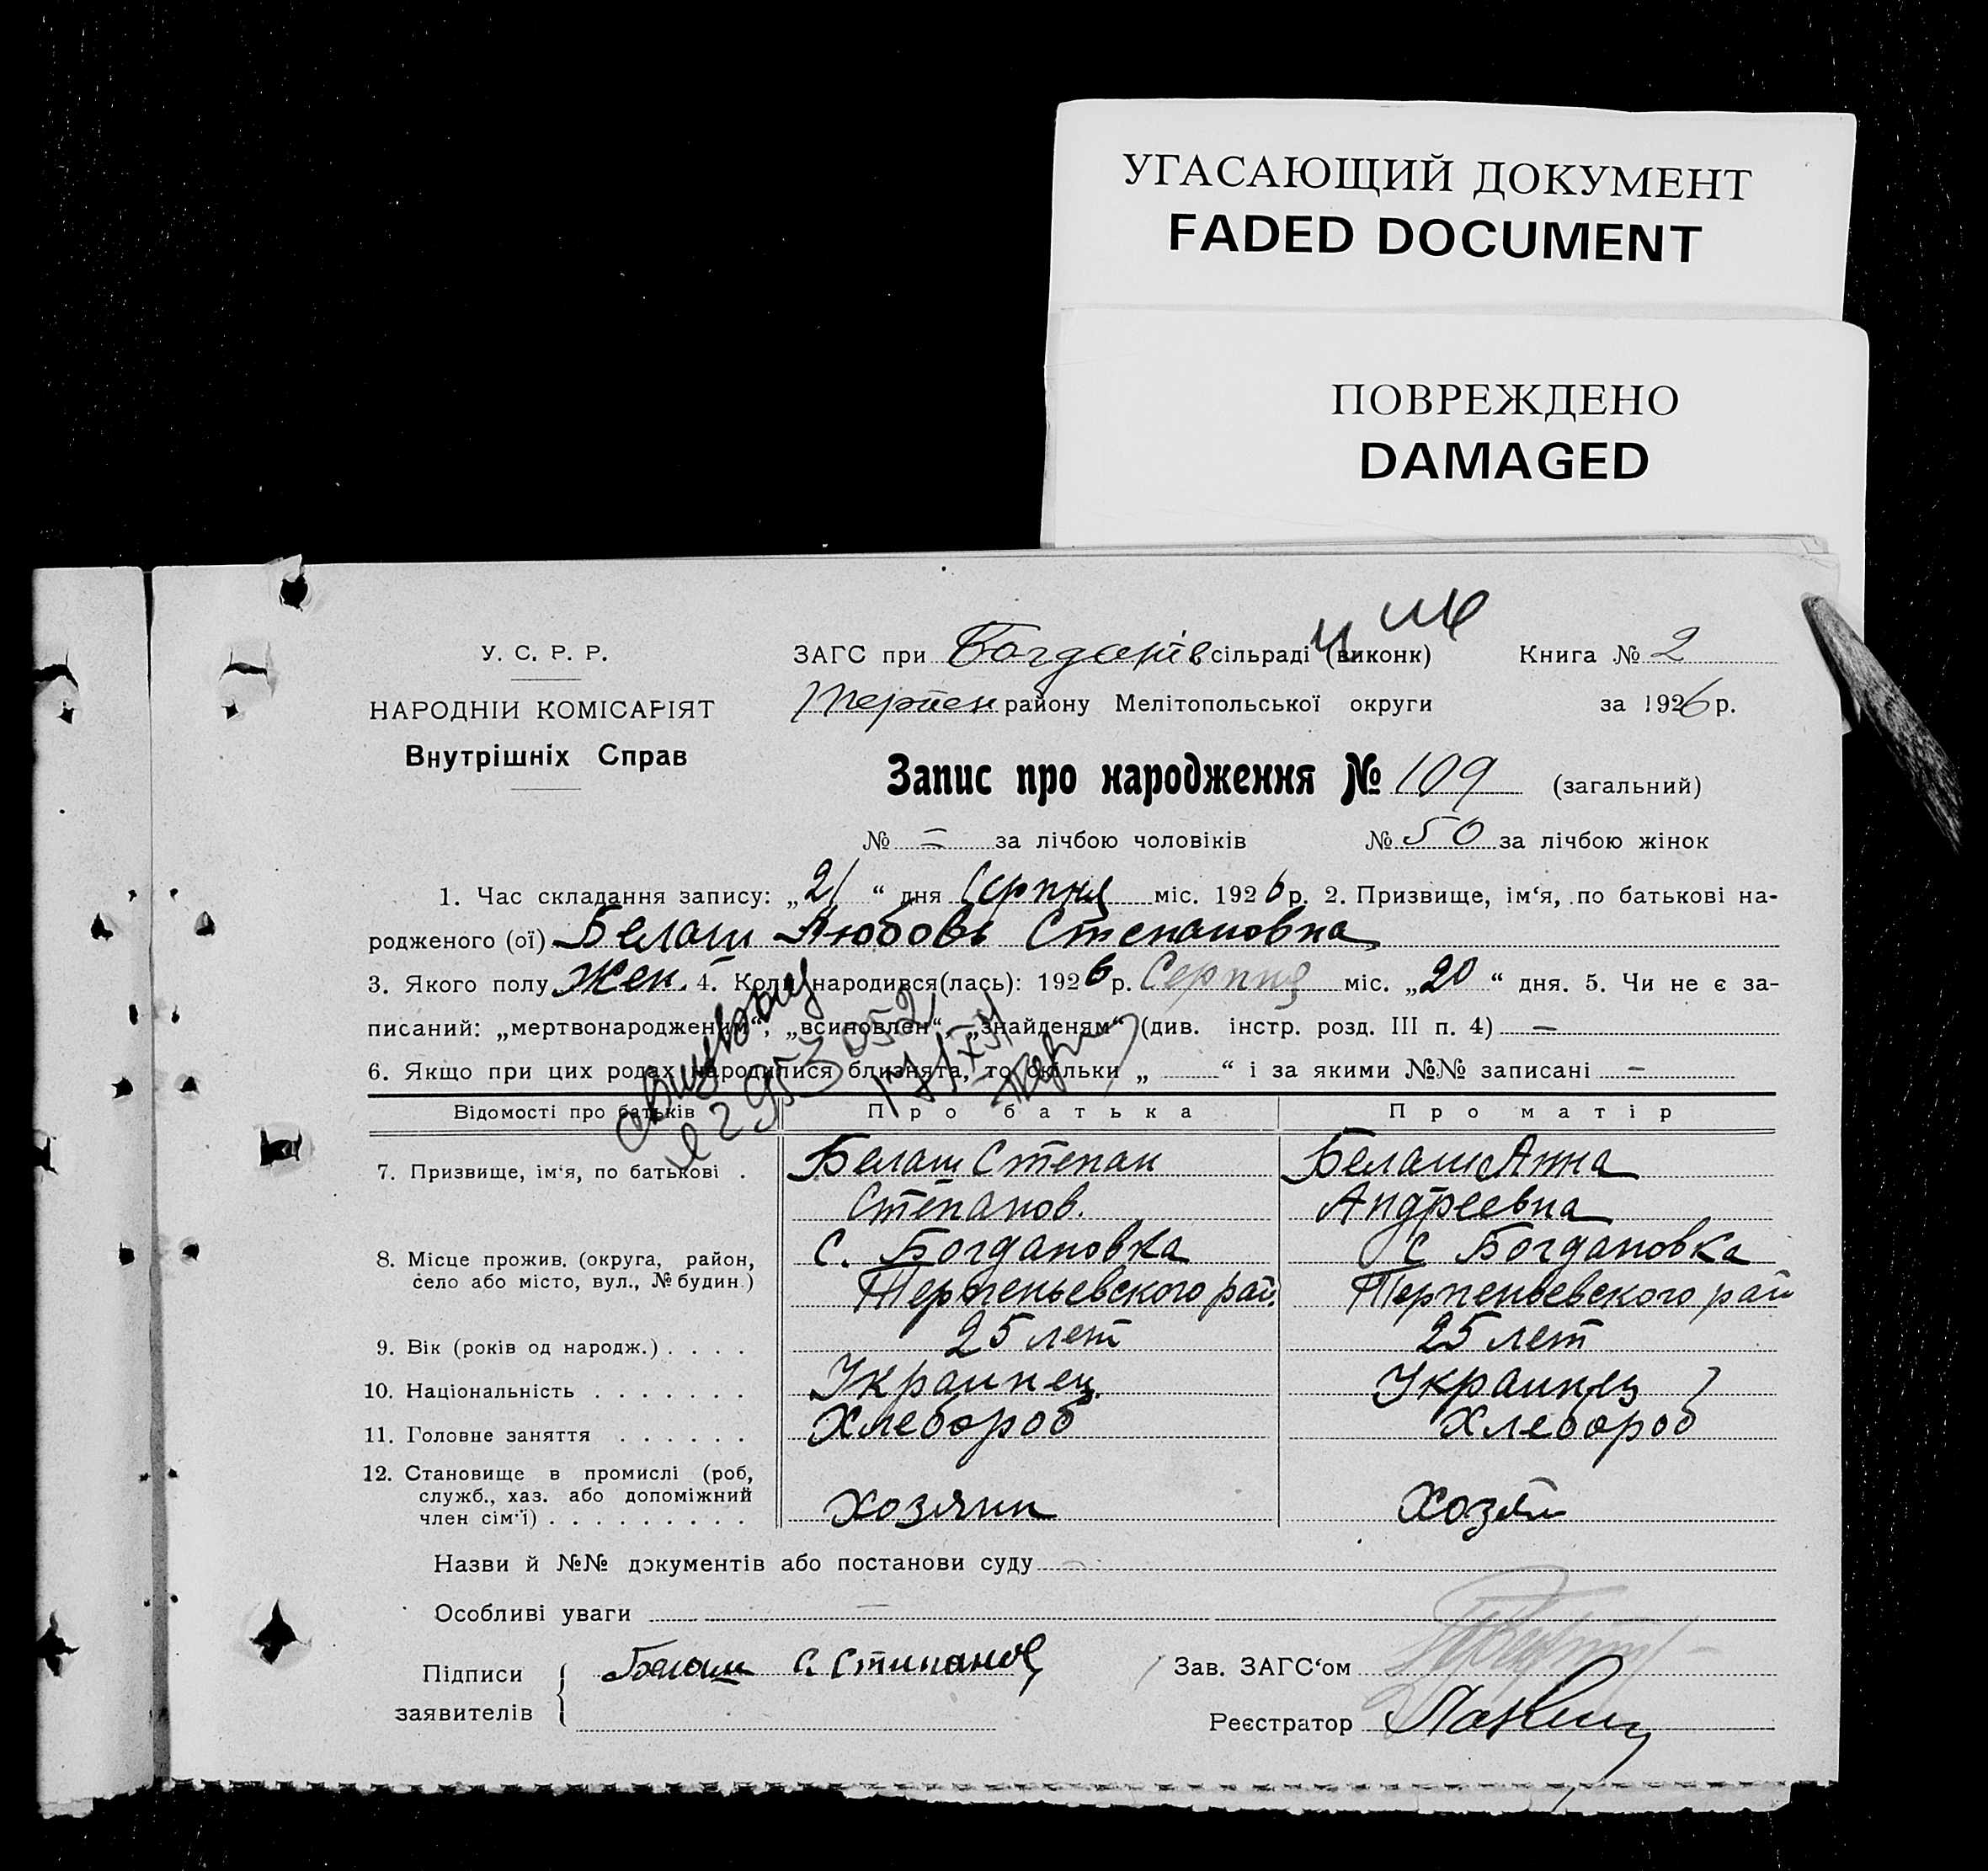 УГАСАЮЩИЙ ДОКУМЕНТ
FADED DOCUMENT
ПОВРЕЖДЕНО
DAMAGED
У. С. Р. Р.
НАРОДНІЙ КОМІСАРІЯТ
Внутрішніх Справ
ЗАГС при Богданів сільраді (виконк) Книга № 2
Терпен району Мелітопольської округи за 1926 р.
Запис про народження № 109 (загальний)
№ = за лічбою чоловіків № 50 за лічбою жінок
1. Час складання запису: „21“ дня Серпня міс. 1926 р. 2. Призвище, ім‘я, по батькові на-
родженого (ої) Белаш Любовь Степановна
3. Якого полу Жен. 4. Коли народився(лась): 1926 р. Серпня міс. „20“ дня. 5. Чи не є за-
писаний: „мертвонародженим“, „всиновлен“, „знайденям“ (див. інстр. розд. III п. 4) —
6. Якщо при цих родах народилися близнята, то скільки „ “ і за якими №№ записані —
Відомості про батьків Про батька Про матір
7. Призвище, ім‘я, по батькові . Белаш Степан Белаш Анна
Степанов. Андреевна
8. Місце прожив. (округа, район, с. Богдановка с Богдановка
село або місто, вул., № будин.) Терпеньевского рай. Терпеньевского рай
9. Вік (років од народж.) . . . . 25 лет 25 лет
10. Національність . . . . . . . Украинец Украинец
11. Головне заняття . . . . . . Хлебороб Хлебороб
12. Становище в промислі (роб,
служб., хаз. або допоміжний хозяин хозяи
член сім‘ї) . . . . . . . . .
Назви й №№ документів або постанови суду —
Особливі уваги —
Підписи Белаш С. Зав. ЗАГС‘ом
заявителів Реєстратор